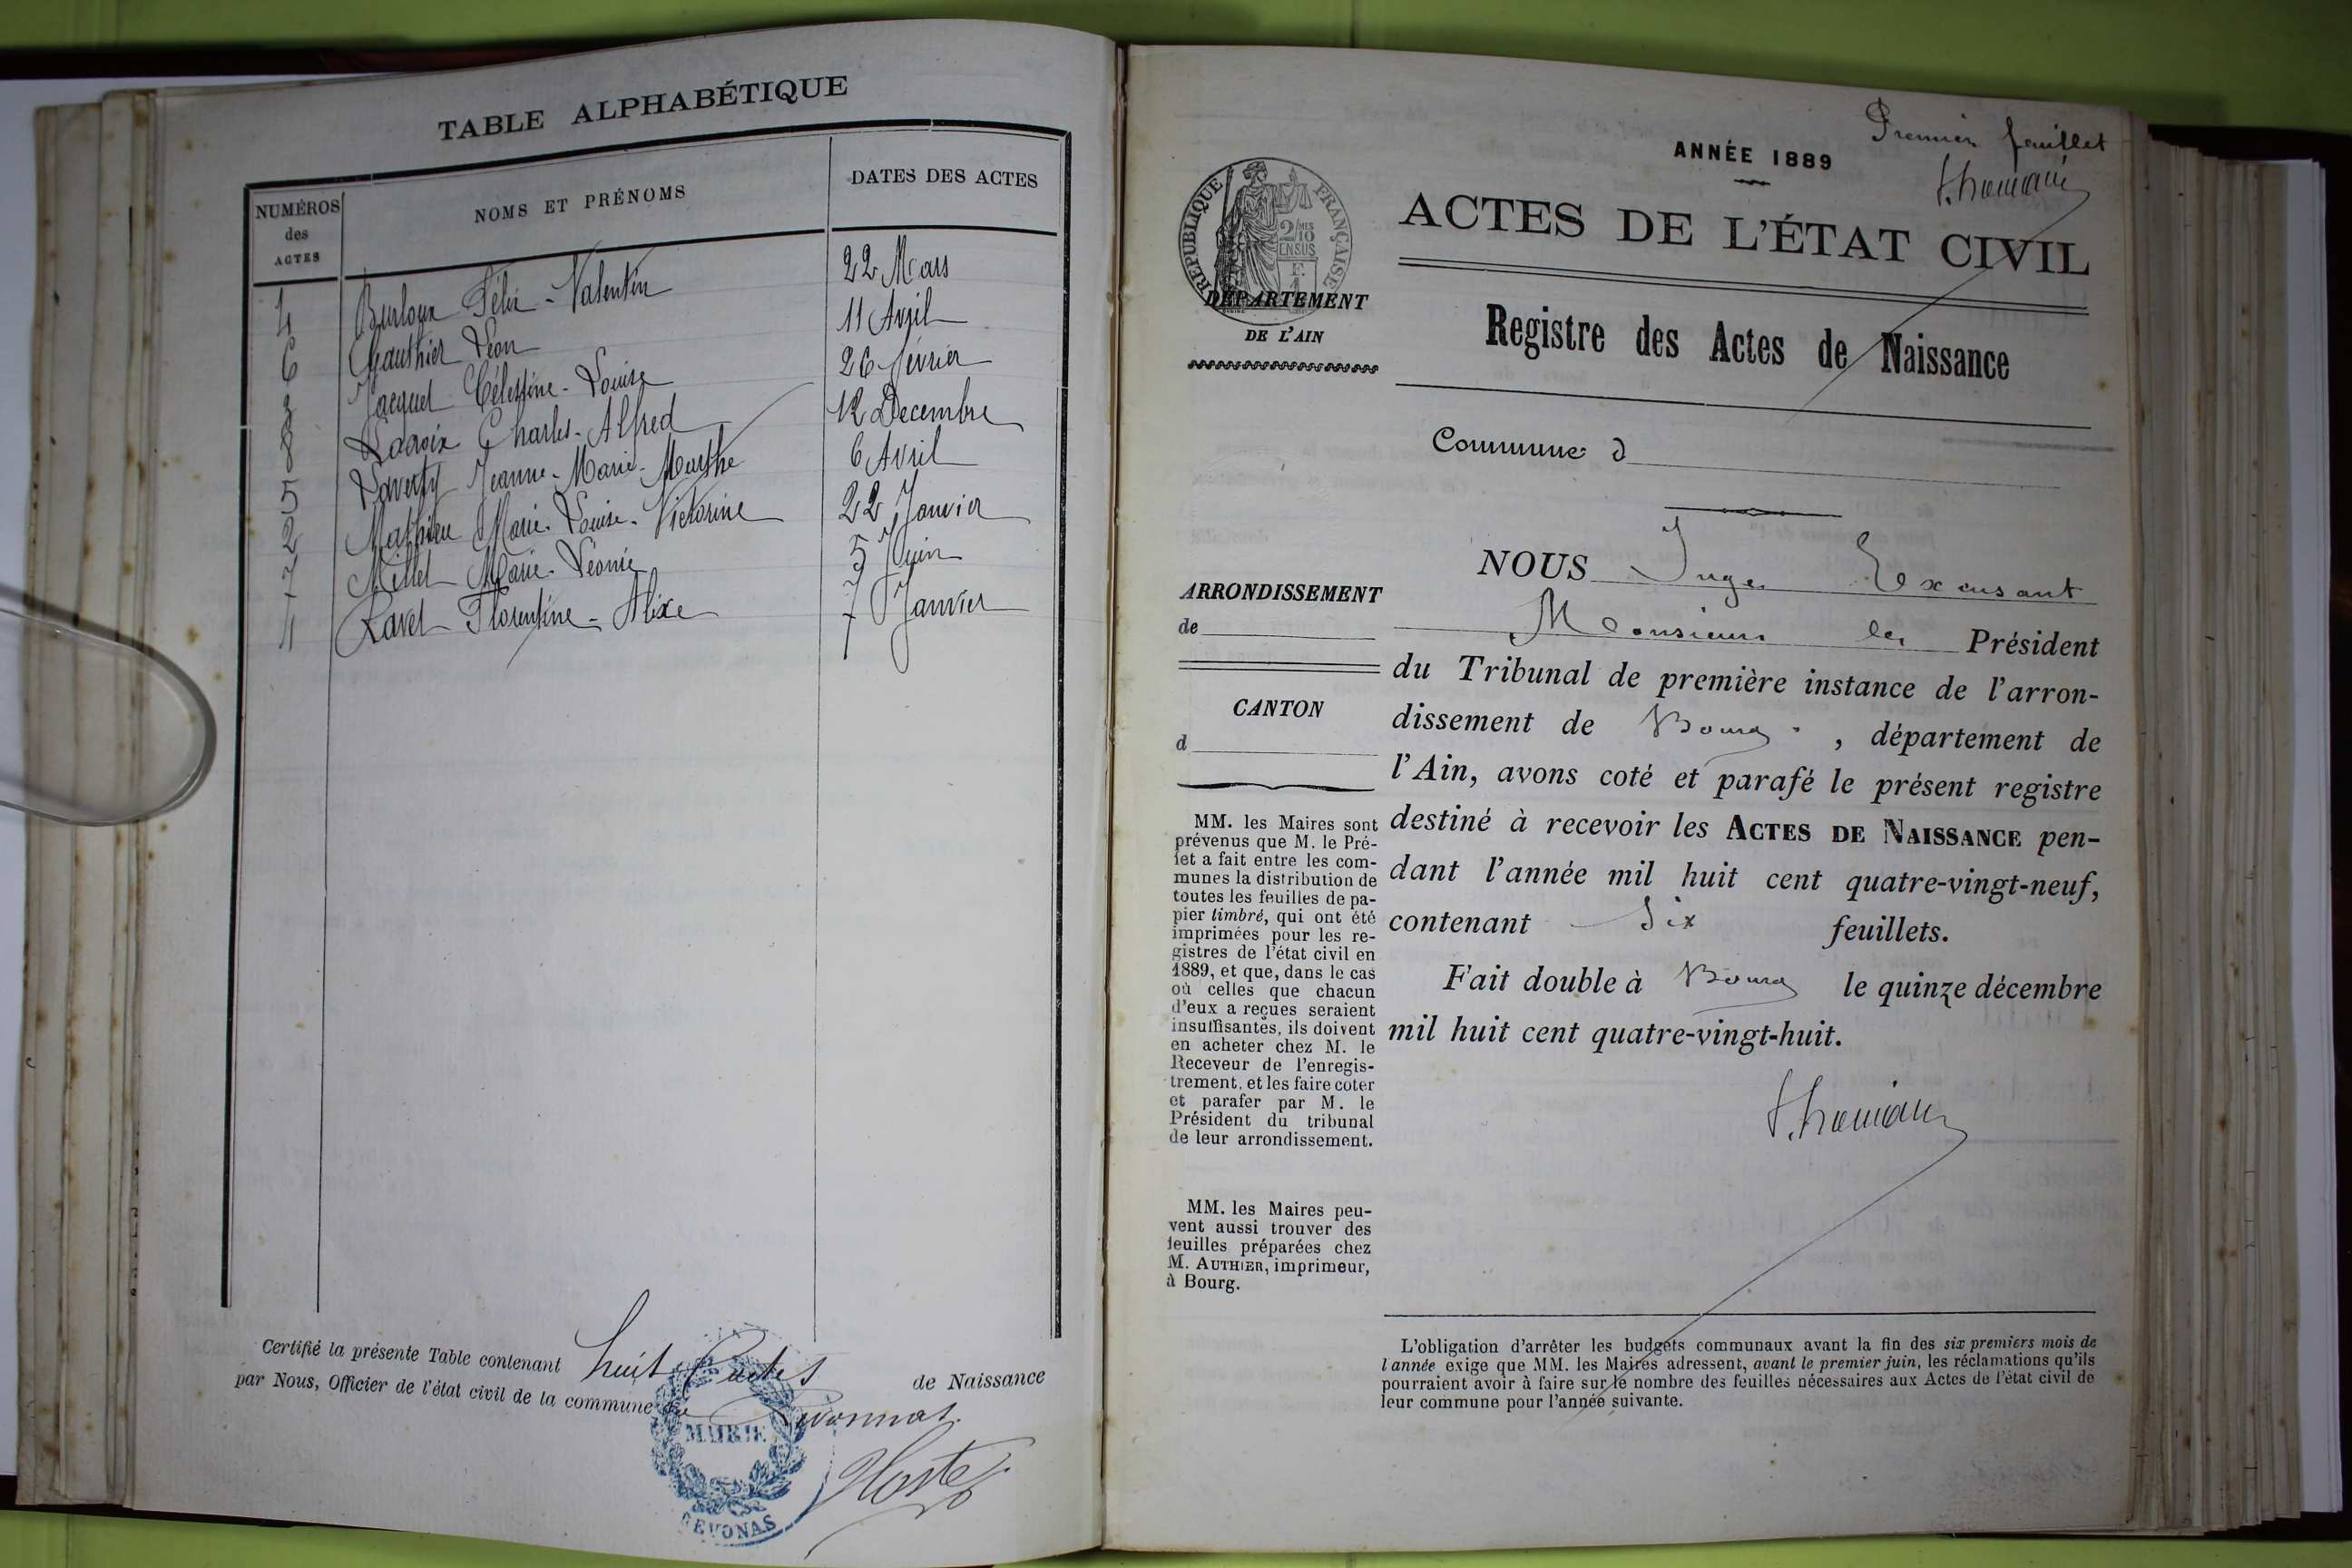 TABLE ALPHABÉTIQUE
NUMÉROS des ACTES
NOMS ET PRÉNOMS
DATES DES ACTES
4 Burloux Félix - Valentin 22 Mars
6 Gauthier Léon 11 Avril
3 Jacquet Célestine - Louise 26 février
8 Lacroix Charles - Alfred 12 Decembre
5 Jeanne - Marie - Marthe 6 Avril
2 Mathieu Marie - Louise - Victorine 22 Janvier
7 Millet Marie - Léonie 5 Juin
1 Ravet Florentine - Alixe 7 Janvier
Certifié la présente Table contenant huit actes de Naissance
par Nous, Officier de l'état civil de la commune de
MAIRIE
EVONAS
Premier feuillet
ANNÉE 1889
RÉPUBLIQUE FRANÇAISE
2/10 MES
EN SUS
ACTES DE L'ÉTAT CIVIL
DÉPARTEMENT
DE L'AIN
Registre des Actes de Naissance
Commune d
NOUS Juge Excusant
Monsieur le Président
du Tribunal de première instance de l'arron-
dissement de Bourg, département de
l'Ain, avons coté et parafé le présent registre
destiné à recevoir les ACTES DE NAISSANCE pen-
dant l'année mil huit cent quatre-vingt-neuf,
contenant Six feuillets.
Fait double à Bourg le quinze décembre
mil huit cent quatre-vingt-huit.
ARRONDISSEMENT
de
CANTON
d
MM. les Maires sont
prévenus que M. le Pré-
fet a fait entre les com-
munes la distribution de
toutes les feuilles de pa-
pier timbré, qui ont été
imprimées pour les re-
gistres de l'état civil en
1889, et que, dans le cas
où celles que chacun
d'eux a reçues seraient
insuffisantes, ils doivent
en acheter chez M. le
Receveur de l'enregis-
trement, et les faire coter
et parafer par M. le
Président du tribunal
de leur arrondissement.
MM. les Maires peu-
vent aussi trouver des
feuilles préparées chez
M. AUTHIER, imprimeur,
à Bourg.
L'obligation d'arrêter les budgets communaux avant la fin des six premiers mois de
l'année exige que MM. les Maires adressent, avant le premier juin, les réclamations qu'ils
pourraient avoir à faire sur le nombre des feuilles nécessaires aux Actes de l'état civil de
leur commune pour l'année suivante.